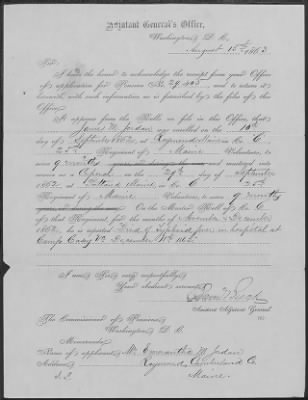 Adjutant General's Office,
Washington, D. C.
August 15th 1863.
Sir:
I have the honor to acknowledge the receipt from your Office
of application for Pension No. 29,425 and to return it
herewith, with such information as is furnished by the files of this
Office.
It appears from the Rolls on file in this Office, that
James M. Jordan was enrolled on the
day of September 1862, at Raymond Maine in Co. C
25th Regiment of Maine Volunteers, to
serve 9 months and mustered into
service as a Corporal on the 29th day of September
1862, at Portland Maine in Co. C 25th
Regiment of Maine Volunteers, to serve 9 months
On the Muster Roll of Co. C
of that Regiment for the months of November & December
1862, he is reported in hospital at
Camp Casey Va December 1862
I am, Sir, very respectfully,
Your obedient servant,
Assistant Adjutant General
The Commissioner of Pensions,
Washington, D. C.
Memoranda:
Name of applicant, Mrs. M Jordan
Address, Raymond, Cumberland Co.
Maine.